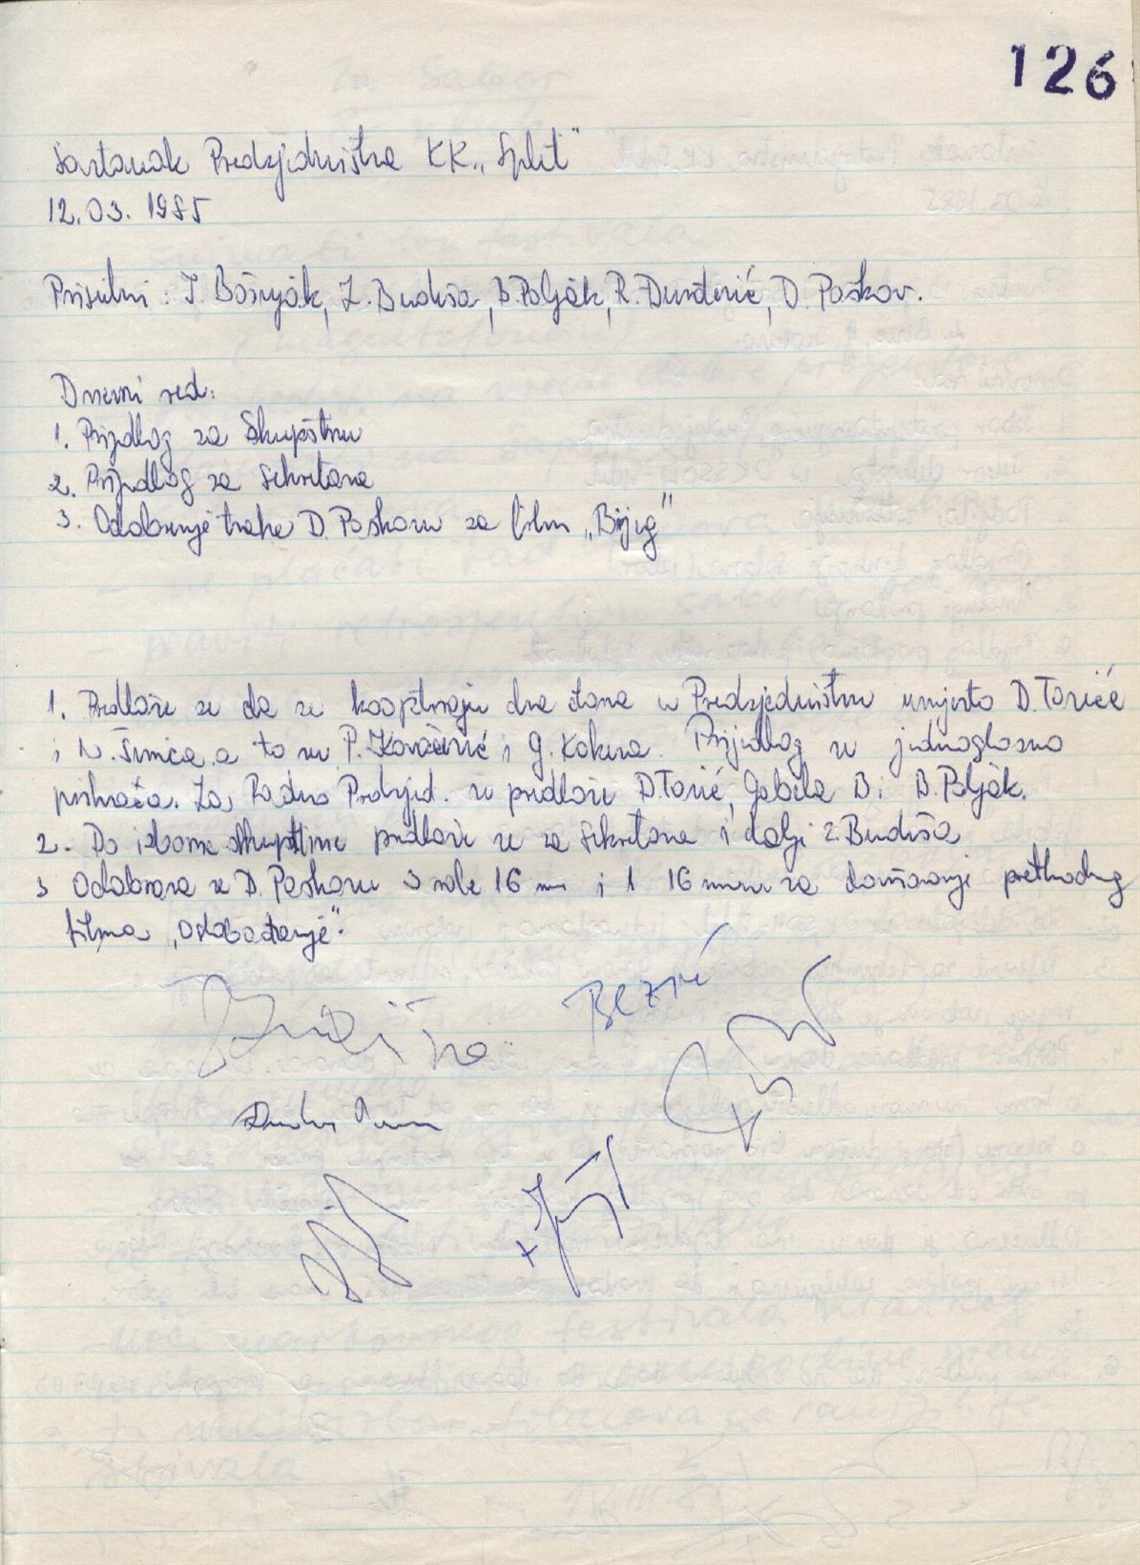 126
Sastanak Predsjedništva KK „Split"
12.03. 1985
Prisutni: I. Bošnjak, Z. Budiša, B. Poljak, R. Đurđević, D. Poškov.
Dnevni red:
1. Prijedlog za Skupštinu
2. Prijedlog za Sekretara
3. Odobrenje trake D. Poškovu za film „Bijeg"
1. Predlaže se da se kooptiraju dva člana u Predsjedništvu umjesto D. Torića
i N. Šimca a to su P. Kovačević i G. Kokera. Prijedlog se jednoglasno
prihvaća. Za Radno Predsjed. se predlaže D. Torić, Gabela B i B. Poljak.
2. Do izborne Skupštine predlaže se za Sekretara i dalje Z. Budiša
3 Odobrava se D. Poškovu 3 role 16 mm i 1 16 mm za prethodnog
filma „Oslobađanje".
Budiša
Bezić